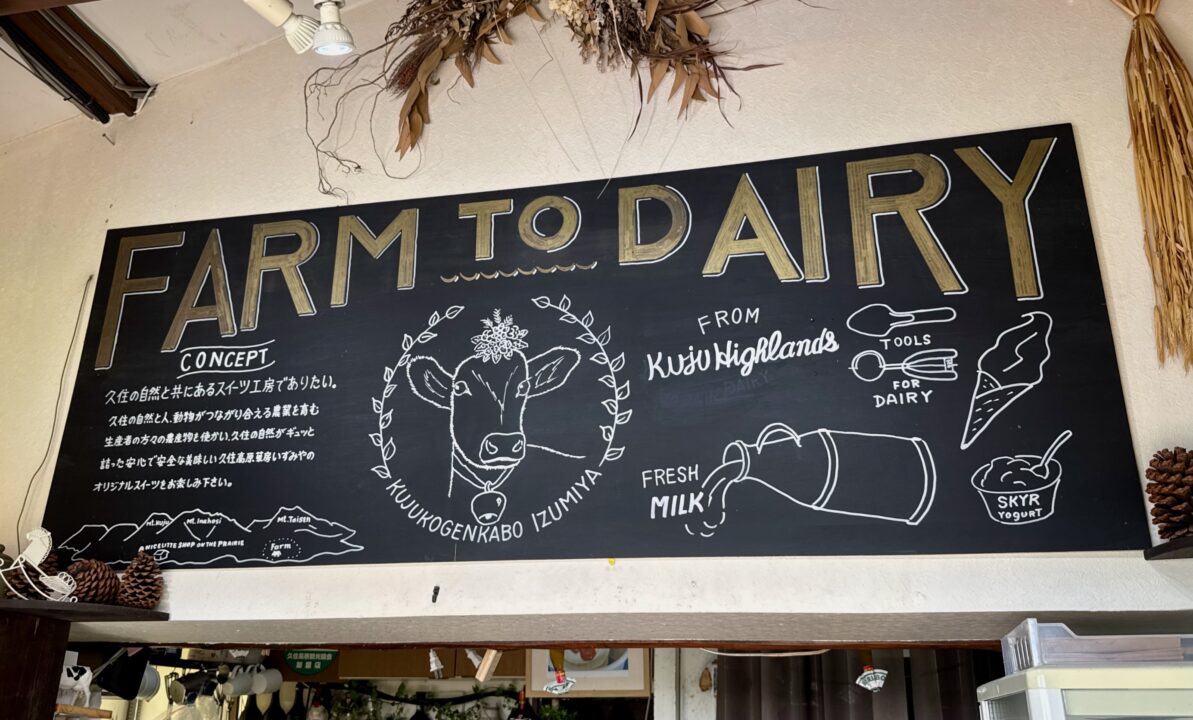 FARM TO DAIRY
CONCEPT
久住の自然と共にあるスイーツ工房でありたい。
久住の自然と人、動物がつながり合える農業を育む
生産者の方々の農産物を使かい、久住の自然がギュッと
詰った安心で安全な美味しい久住高原菓房いずみやの
オリジナルスイーツをお楽しみ下さい。
Mt.Kuju
Mt.Inahosi
Mt.Taisen
A NICE LITTE SHOP ON THE PRAIRIE
Farm
KUJUKOGENKABO IZUMIYA
FROM
Kuju Highlands
FRESH
MILK
TOOLS
FOR
DAIRY
SKYR
YOGURT